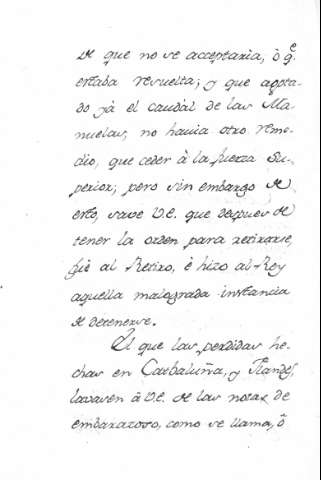 de que no se acceptaria, ò q.e
estaba resuelta; y que agota-
do yà el caudàl de las Ma-
nuelas, no havia otro reme-
dio, que ceder à la fuerza Su-
perior; pero sin embargo de
esto, save V.E. que despues de
tener la orden para retirarse,
fuè al Retiro, è hizo al Rey
aquella malograda instancia
de detenerse.
El que las perdidas he-
chas en Cathaluña, y Flandes,
laven à V.E. de las notas de
embarazoso, como se llama, ò